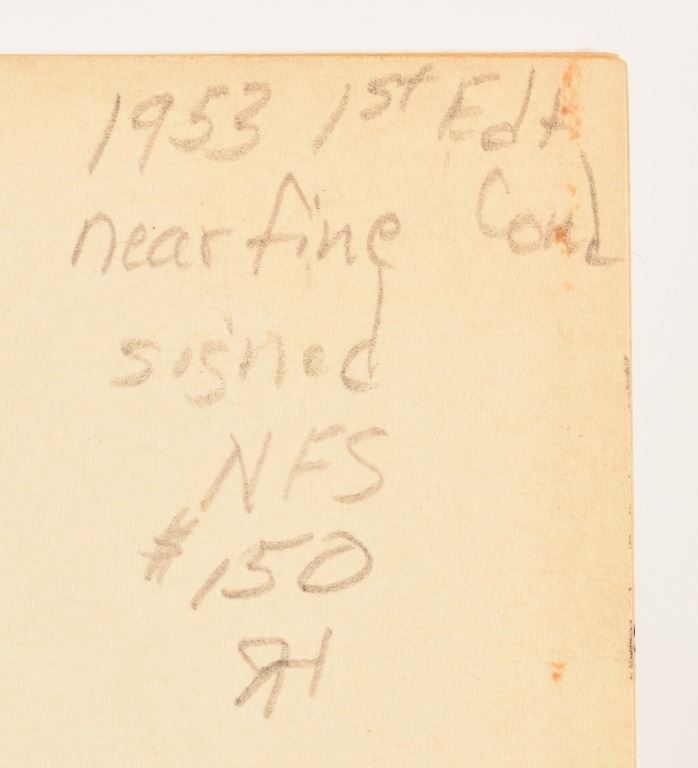 1953 1st Edt
near fine Cond
signed
NFS
$150